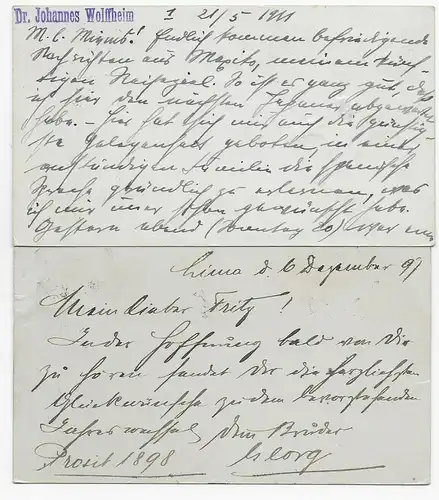 Dr. Johannes Wolffheim
1 21/5 1911
M. l. Mimmt! Endlich kommen befriedigende
Nachrichten aus Mexiko, meinem künf-
tigen Reiseziel. So ist es ganz gut, daß
ich hier den nächsten abgewartet
habe. – Hier hat sich mir auch die günstig-
ste Gelegenheit geboten, in einer
anständigen Familie die spanische
Sprache gründlich zu erlernen, was
ich mir immer schon gewünscht habe.
Gestern abend (Sonntag 20) war
Lima d. 6 Dezember 97
Mein lieber Fritz!
In der Hoffnung bald von Dir
zu hören sendet Dir die herzlichsten
Glückwünsche zu dem bevorstehenden
Jahreswechsel Dein Bruder
Prosit 1898 Georg